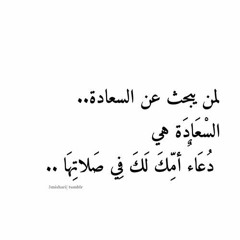 لمن يبحث عن السعادة..
السْعَادَة هي
دُعَاءٌ أمِّكَ لَكَ فِي صَلاتِهَا ..